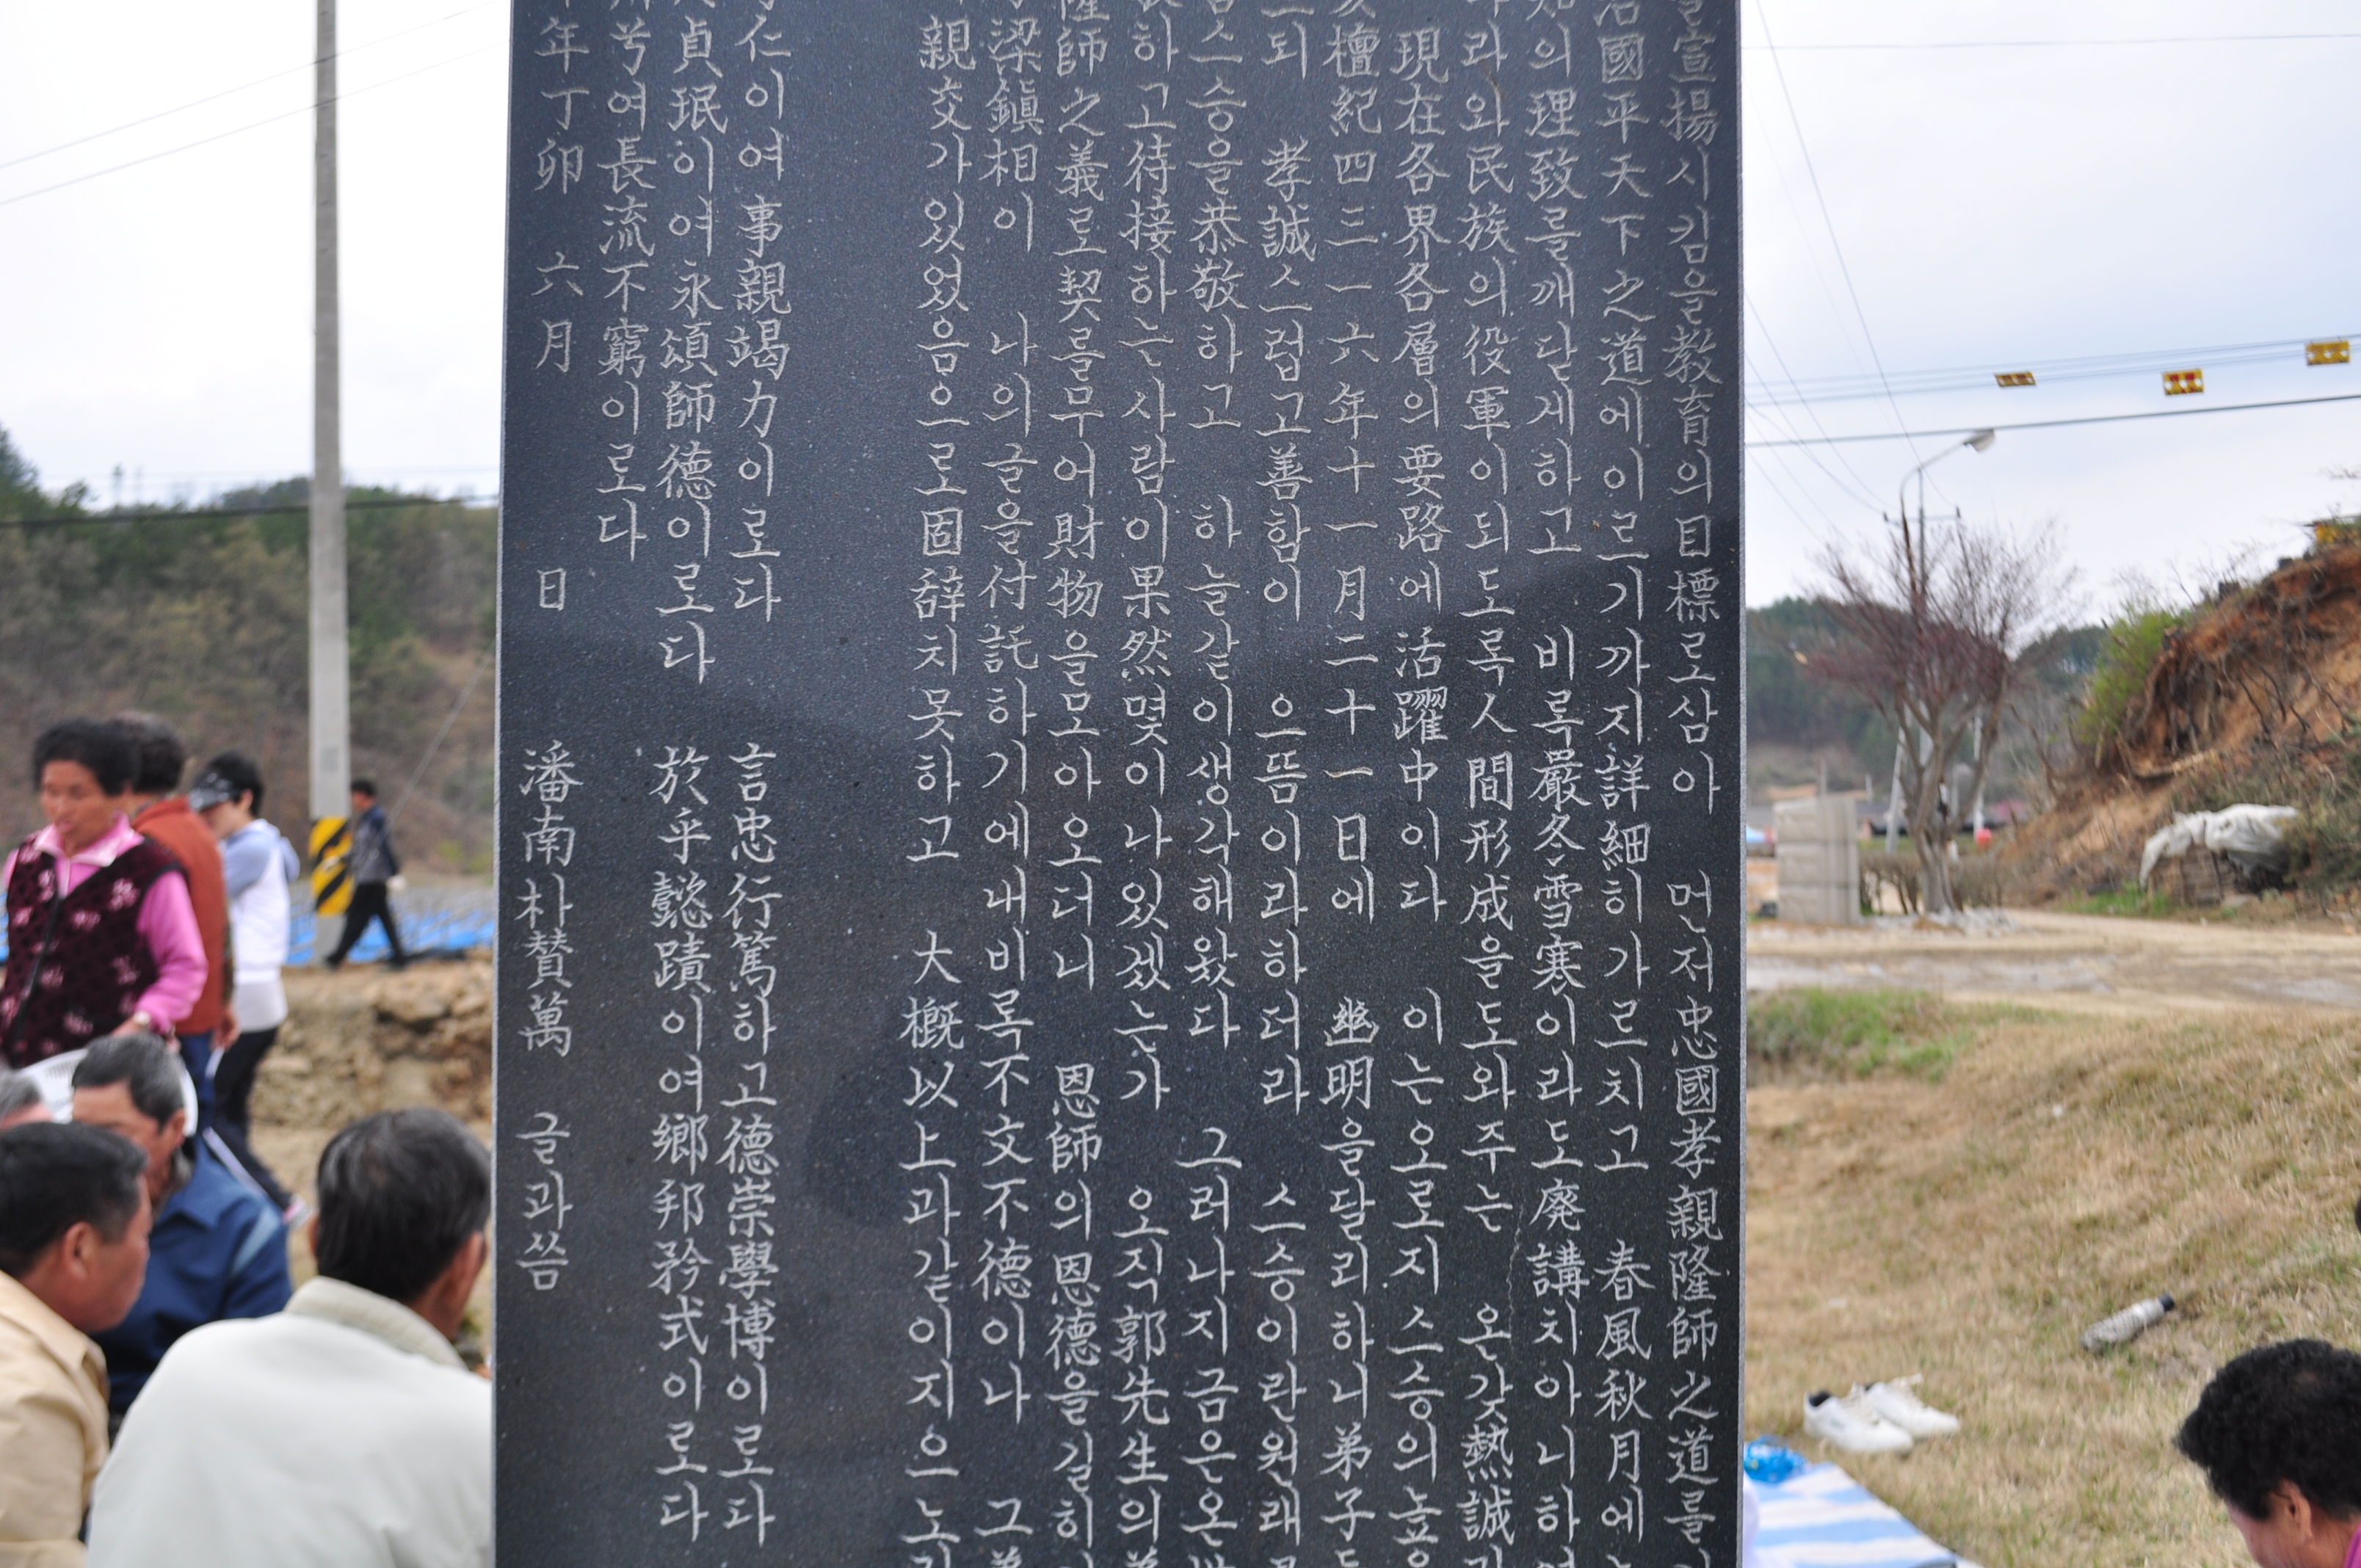 宣揚시킴을敎育의目標로삼아 먼저忠國孝親隆師之道를
國平天下之道에이르기까지詳細히가르치고 春風秋月에
의理致를깨닫게하고 비록嚴冬雪寒이라도廢講치아니하
라와民族의役軍이되도록人間形成을도와주는 온갖熱誠
現在各界各層의要路에活躍中이다 이는오로지스승의높
檀紀四三一六年十一月二十一日에 幽明을달리하니弟子
되 孝誠스럽고善함이 으뜸이라하더라 스승이란원래
스승을恭敬하고 하늘같이생각해왔다 그러나지금은온
하고待接하는사람이果然몇이나있겠는가 오직郭先生의
師之義로契를무어財物을모아오더니 恩師의恩德을길히
梁鎭相이 나의글을付託하기에내비록不文不德이나 그
親交가있었음으로固辭치못하고 大槪以上과같이지으노
仁이여事親竭力이로다 言忠行篤하고德崇學博이로다
貞珉이여永頌師德이로다 於乎懿蹟이여鄕邦矜式이로다
여長流不窮이로다
年丁卯 六月 日 潘南朴贊萬 글과씀